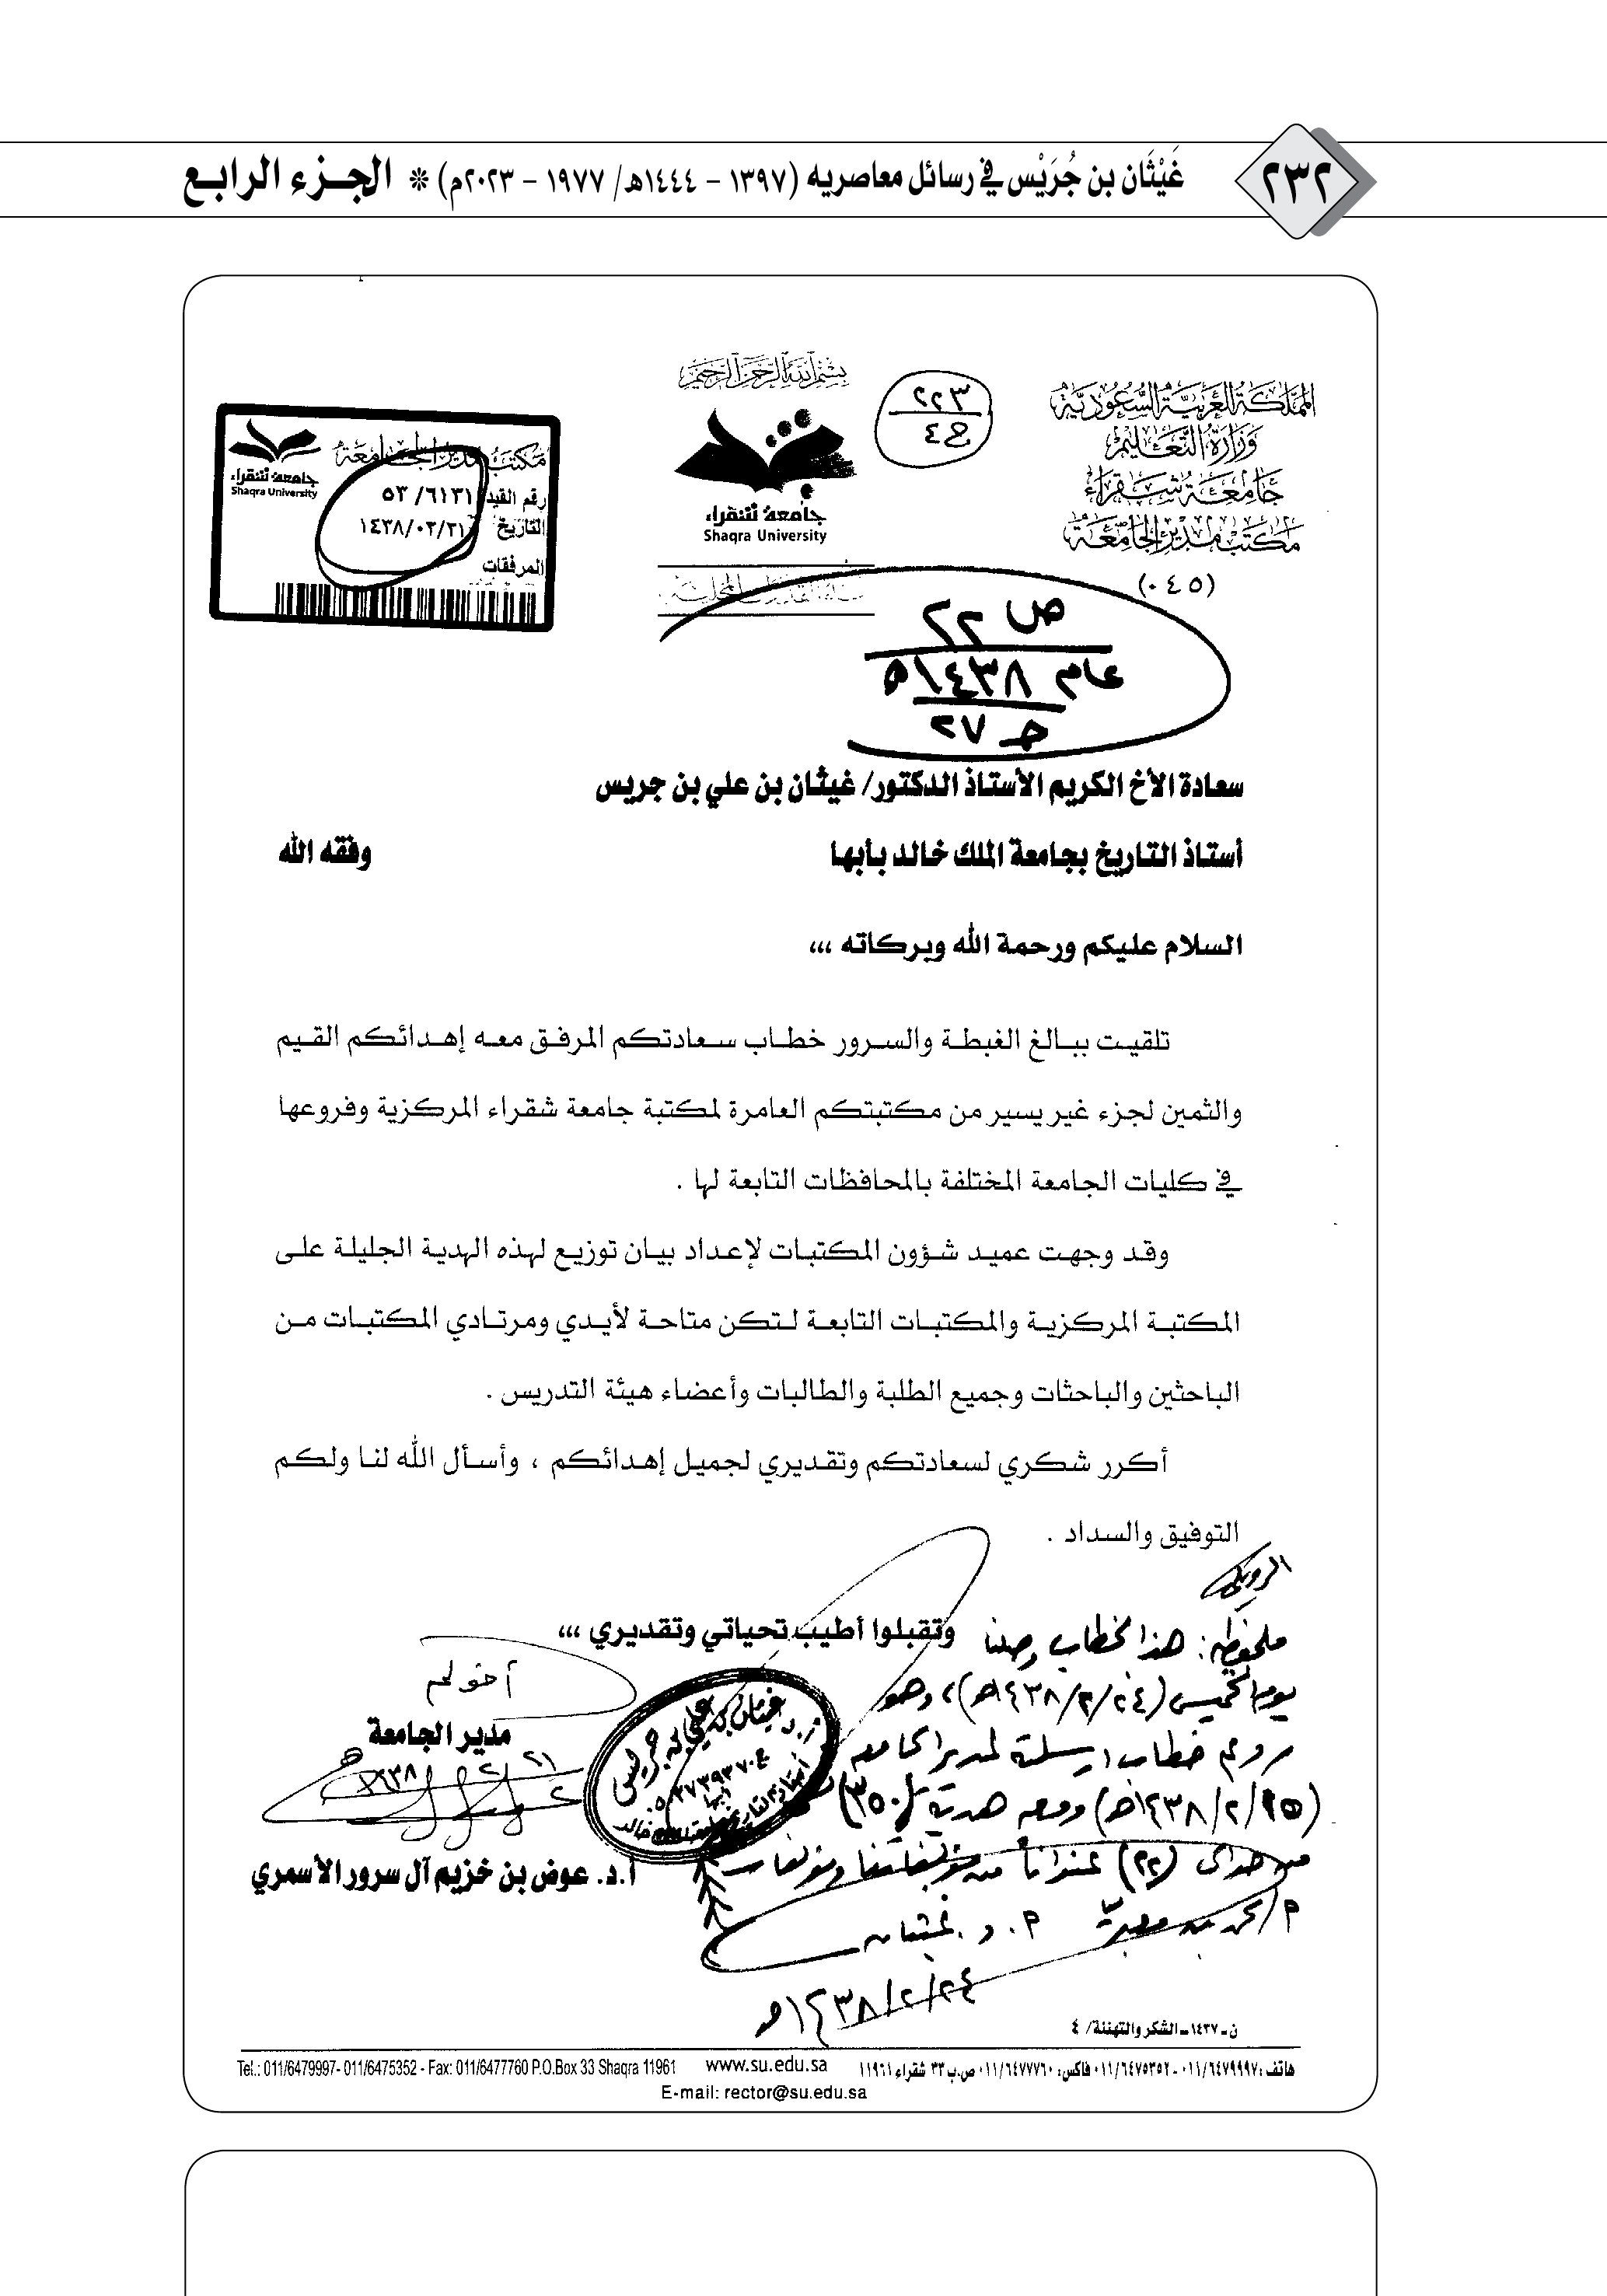 ٢٣٢
غَيْثَان بن جُرَيْس في رسائل معاصريه (١٣٩٧ - ١٤٤٤هـ/ ١٩٧٧ - ٢٠٢٣م) * الجزء الرابع
بسم الله الرحمن الرحيم
المملكة العربية السعودية
وزارة التعليم
جامعة شقراء
مكتب مدير الجامعة
(٠٤٥)
٢٢٣
ج٤
جامعة شقراء
Shaqra University
مكتب مدير الجامعة
جامعة شقراء
Shaqra University
رقم القيد ٥٣/٦١٣١
التاريخ
المرفقات
ص ٢٢
عام ١٤٣٨هـ
ج ٢٧
سعادة الأخ الكريم الأستاذ الدكتور/ غيثان بن علي بن جريس
أستاذ التاريخ بجامعة الملك خالد بأبها وفقه الله
السلام عليكم ورحمة الله وبركاته ،،،
تلقيت ببالغ الغبطة والسرور خطاب سعادتكم المرفق معه إهدائكم القيم
والثمين لجزء غير يسير من مكتبتكم العامرة لمكتبة جامعة شقراء المركزية وفروعها
في كليات الجامعة المختلفة بالمحافظات التابعة لها .
وقد وجهت عميد شؤون المكتبات لإعداد بيان توزيع لهذه الهدية الجليلة على
المكتبة المركزية والمكتبات التابعة لتكن متاحة لأيدي ومرتادي المكتبات من
الباحثين والباحثات وجميع الطلبة والطالبات وأعضاء هيئة التدريس .
أكرر شكري لسعادتكم وتقديري لجميل إهدائكم ، وأسأل الله لنا ولكم
التوفيق والسداد .
وتقبلوا أطيب تحياتي وتقديري ،،،
أخوكم
مدير الجامعة
أ.د. عوض بن خزيم آل سرور الأسمري
ملحوظة: هذا الخطاب وصلنا
يوم الخميس (١٤٣٨/٢/٢٤هـ)، وهو
خطاب أرسلته لمدير الجامعة
ومعه هدية (٣٥٠)
(٢٢) عنواناً من مؤلفاتنا ومؤلفات
أ.د. غيثان بن علي بن جريس
١٤٣٨/٢/٢٤هـ
ن-١٤٣٧-الشكر والتهنئة/ ٤
هاتف: ٠١١/٦٤٧٩٩٩٧ - ٠١١/٦٤٧٥٣٥٢ فاكس: ٠١١/٦٤٧٧٧٦٠ ص.ب ٣٣ شقراء ١١٩٦١
www.su.edu.sa
Tel.: 011/6479997- 011/6475352 - Fax: 011/6477760 P.O.Box 33 Shaqra 11961
E-mail: rector@su.edu.sa